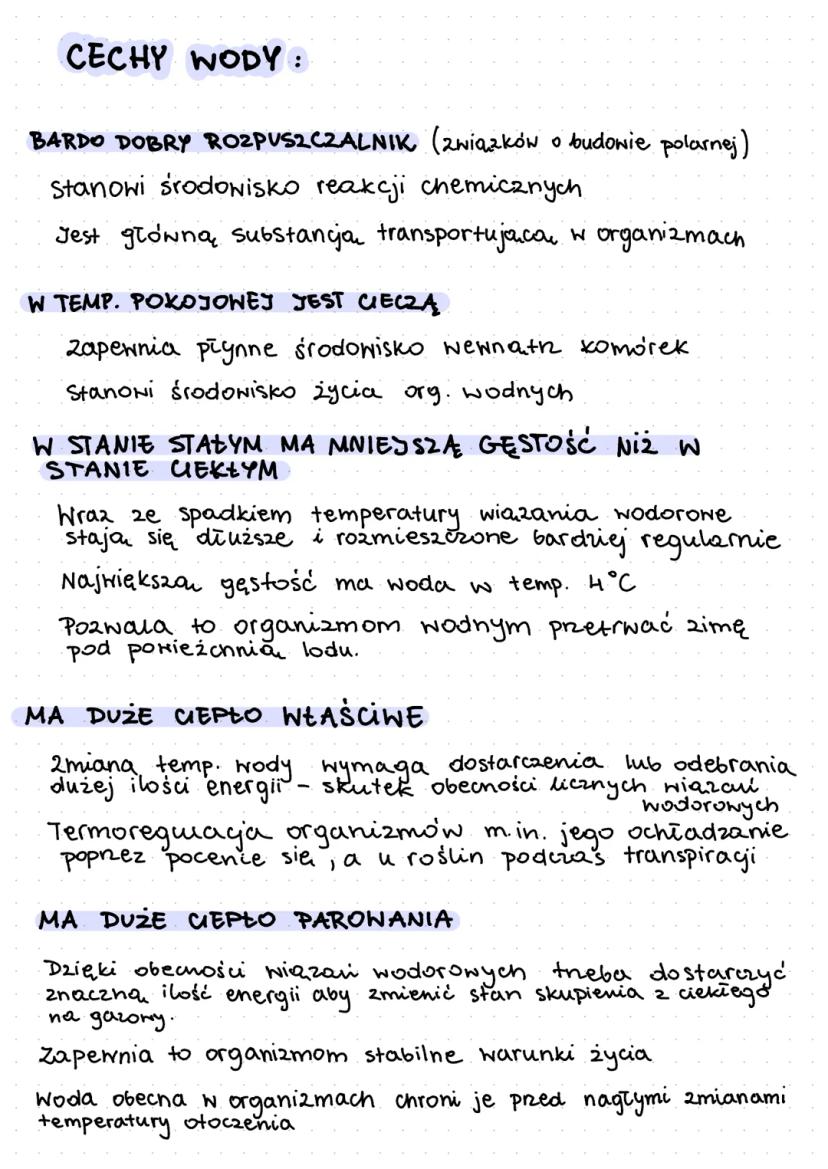 CECHY WODY:
BARDO DOBRY ROZPUSZCZALNIK (związków o budowie polarnej)
Stanowi środowisko reakcji chemicznych
Jest główną substancją transportującą w organizmach
W TEMP. POKOJOWEJ JEST CIECZĄ
Zapewnia płynne środowisko wewnątrz komórek
Stanowi środowisko życia org. wodnych
W STANIE STAŁYM MA MNIEJSZĄ GĘSTOŚĆ NIŻ W
STANIE CIEKŁYM
Wraz ze spadkiem temperatury wiązania wodorowe
stają się dłuższe i rozmieszczone bardziej regularnie
Największą gęstość ma woda w temp. 4°C
Pozwala to organizmom wodnym przetrwać zimę
pod powieżchnią lodu.
MA DUŻE CIEPŁO WŁAŚCIWE
Zmiana temp. wody wymaga dostarczenia lub odebrania
dużej ilości energii – skutek obecności licznych wiązań
wodorowych
Termoregulacja organizmów m.in. jego ochładzanie
poprzez pocenie się, a u roślin podczas transpiracji
MA DUŻE CIEPŁO PAROWANIA
Dzięki obecności wiązań wodorowych trzeba dostarczyć
znaczną ilość energii aby zmienić stan skupienia z ciekłego
na gazowy.
Zapewnia to organizmom stabilne warunki życia
Woda obecna w organizmach chroni je przed nagłymi zmianami
temperatury otoczenia